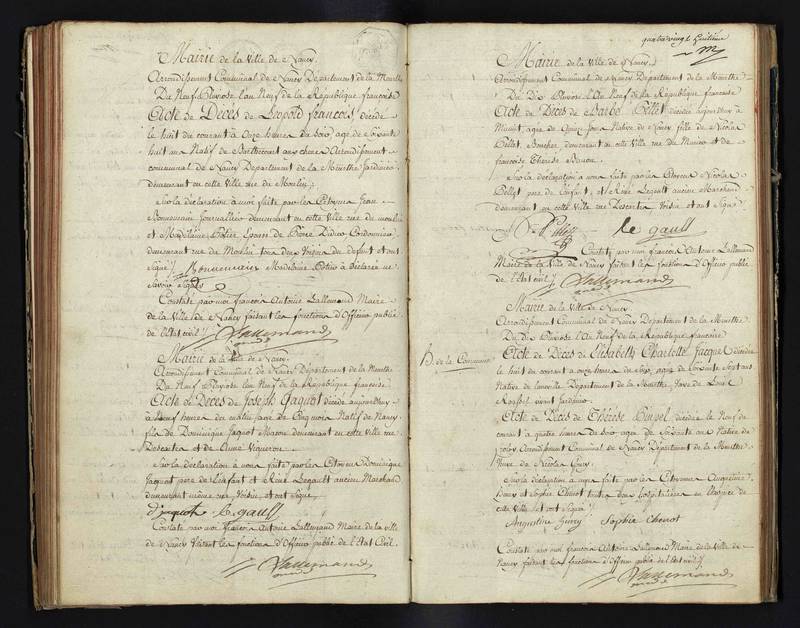 Mairie de la Ville de Nancy.
Arrondissement Communal de Nancy Département de la Meurthe
Du Neuf Pluviose l'an Neuf de la République françoise
Acte de Décès de Leopold francois décédé
le huit du courant à onze heures du soir, agé de soixante
huit ans Natif de Arrondissement
communal de Nancy Département de la Meurthe Jardinier
demeurant en cette Ville rue du Moulin;
Sur la déclaration à nous faite par les Citoyens Jean
Journaillier demeurant en cette Ville rue du moulin
et Madelaine Epouse de Cordonnier
demeurant rue du Moulin tous deux Voisins du défunt et ont
Signé Madelaine à déclaré ne
Savoir signer
Constaté par moi françois Antoine Lallemand Maire
de la Ville de Nancy faisant les fonctions d'Officier public
de l'Etat civil
Lallemand
Mairie de la Ville de Nancy.
Arrondissement Communal de Nancy Département de la Meurthe
Du Neuf Pluviose l'an Neuf de la République françoise
Acte de Décès de Joseph Jaquot décédé aujourd'huy
à heures du matin, agé de Natif de Nancy
fils de Dominique Jaquot Macon demeurant en cette Ville rue
Descartes et de Anne Vigneron
Sur la déclaration à nous faite par les Citoyens Dominique
Jaquot pere de l'enfant et Réné Legault ancien Marchand
demeurant même rue, Voisin et ont Signé
d jaquot le gault
Constaté par moi françois Antoine Lallemand Maire de la ville
de Nancy faisant les fonctions d'Officier public de l'Etat Civil.
Lallemand
quatrevingt huitième
Mairie de la Ville de Nancy.
Arrondissement Communal de Nancy Département de la Meurthe
Du Dix Pluviose l'an Neuf de la République françoise
Acte de Décès de Barbe Pellet décédée aujourd'huy à
Minuit, agée de jours Native de Nancy fille de Nicolas
Pellet demeurant en cette Ville rue du et de
françoise Therese
Sur la déclaration à nous faite par les Citoyens Nicolas
Pellet pere de l'enfant, et Réné Legault ancien Marchand
demeurant en cette Ville rue Descartes Voisin et ont Signé
le gault
Constaté par moi françois Antoine Lallemand
Maire de la Ville de Nancy faisant les fonctions d'Officier public
de l'Etat civil
Lallemand
Mairie de la Ville de Nancy
Arrondissement Communal de Nancy Département de la Meurthe
Du dix Pluviose l'an Neuf de la République françoise
de la Commune
Acte de Décès de Elisabeth Charlotte Jacquel décédée
le huit du courant à onze heures du soir, agée de soixante sept ans
Native de Luneville Département de la Meurthe, Veuve de Louis
vivant Jardinier.
Acte de Décès de Thérèse décédée le Neuf du
courant à quatre heures du soir, agée de soixante ans Native de
Arrondissement Communal de Nancy Département de la Meurthe
Veuve de Nicolas
Sur la déclaration à nous faite par les Citoyennes Augustine
Guerry et Sophie Thenot toutes deux hospitalières en l'hospice de
cette Ville et ont Signé
Augustine Guerry Sophie Thenot
Constaté par moi françois Antoine Lallemand Maire de la Ville de
Nancy faisant les fonctions d'Officier public de l'Etat civil
Lallemand